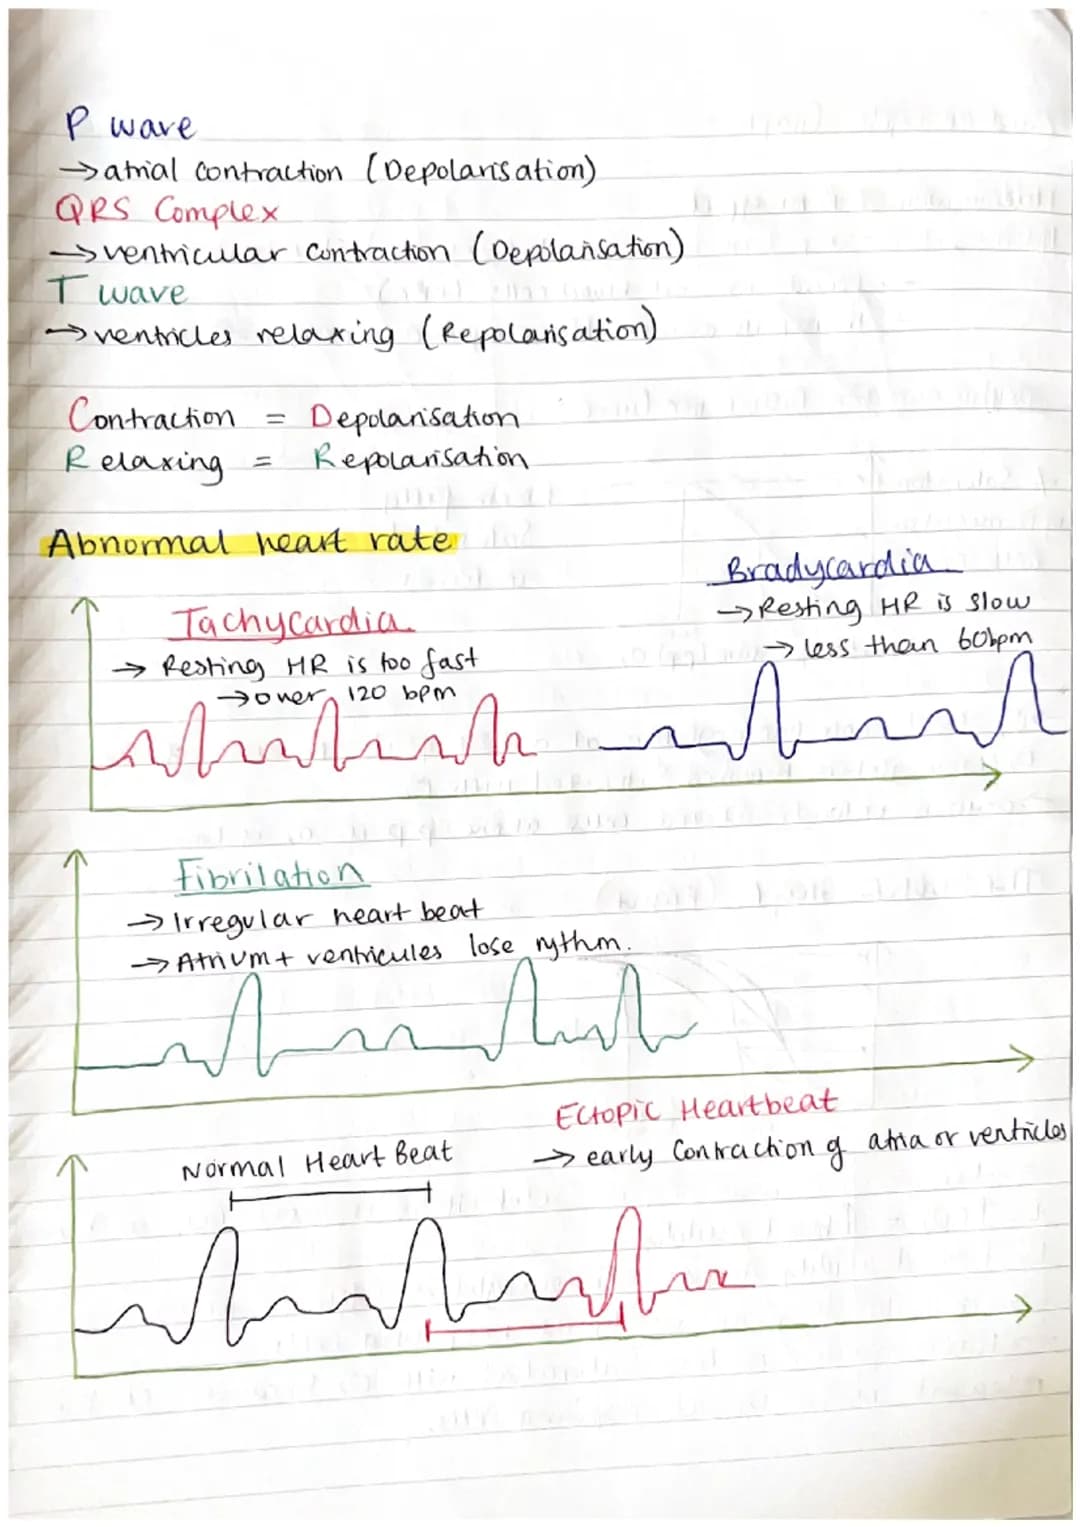 P wave
→ atrial contraction (Depolarisation)
QRS Complex
→ ventricular contraction (Depolarisation)
T wave
→ ventricles relaxing (Repolarisation)
Contraction = Depolarisation
Relaxing = Repolarisation
Abnormal heart rate
Tachycardia
→ Resting HR is too fast
→ over 120 bpm
Bradycardia
→ Resting HR is slow
→ less than 60bpm
Fibrilation
→ Irregular heart beat
→ Atrium + ventricules lose rythm.
Normal Heart Beat
Ectopic Heartbeat
→ early Contraction of atria or ventricles